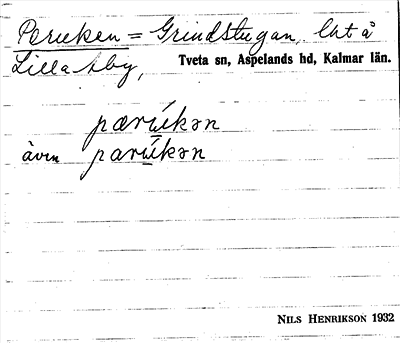 Peruken = Grindstugan, lht å
Lilla Aby, Tveta sn, Aspelands hd, Kalmar län.
pærúkən
även parúkən
NILS HENRIKSON 1932